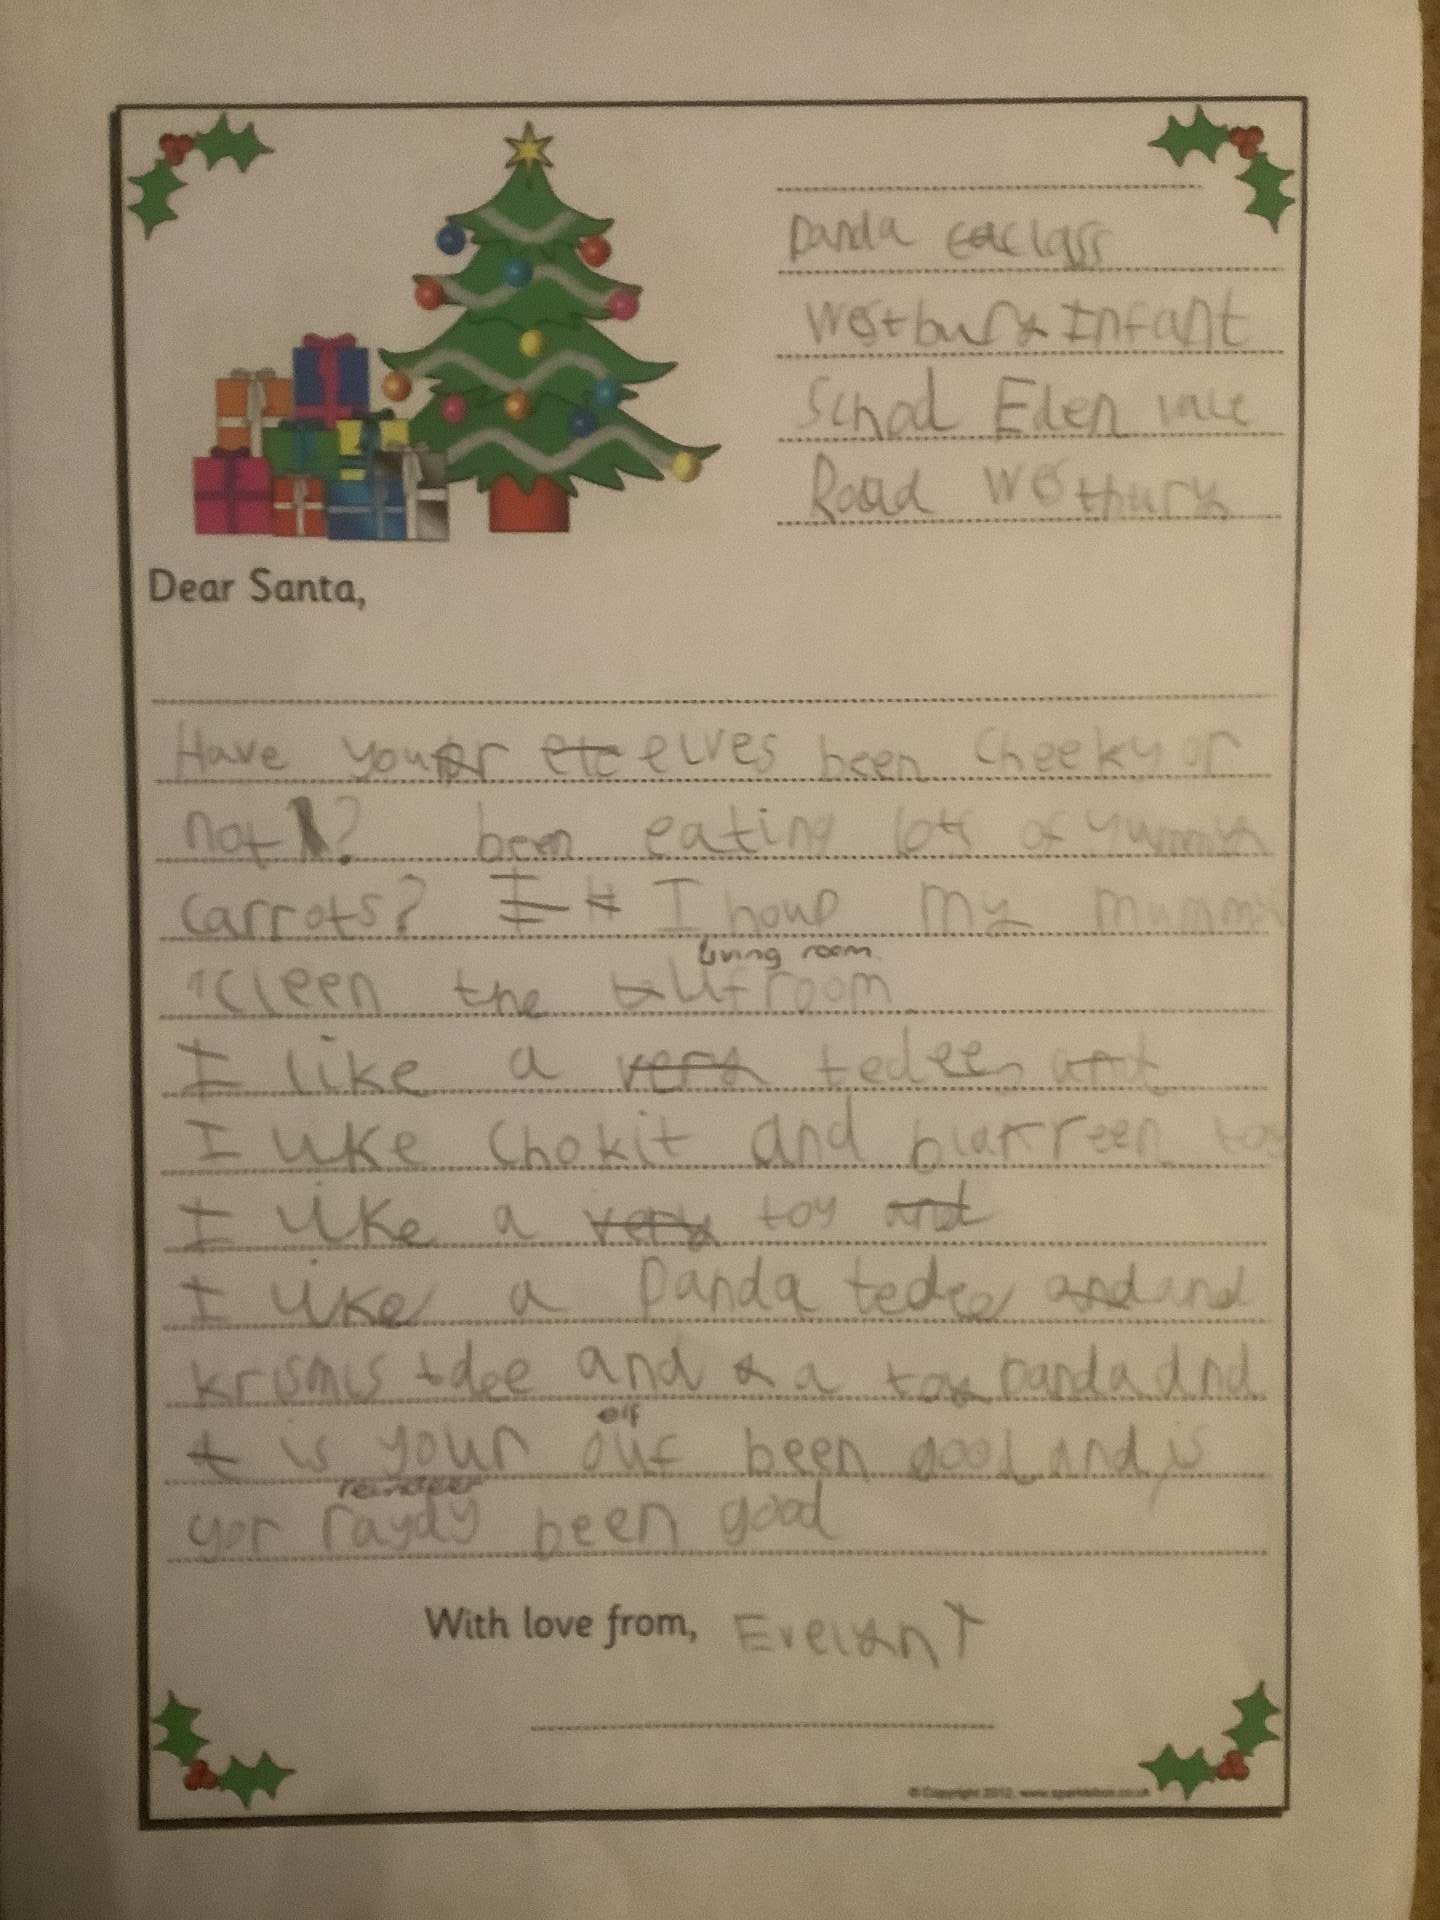 Panda class
Westbury Infant
School Eden vale
Road Westbury
Dear Santa,
Have your elves been cheeky or
not? been eating lots of yummy
carrots? I houp my mummy
living room
cleen the lifroom
I like a very tedee and
I like chokit and blakreen toy
I like a very toy and
I like a Panda tedee and and
krismis tdee and a toy panda and
elf
is your ouf been good and is
reindeer
yor raydy been good
With love from, Evelyn T
© Copyright 2012, www.sparklebox.co.uk